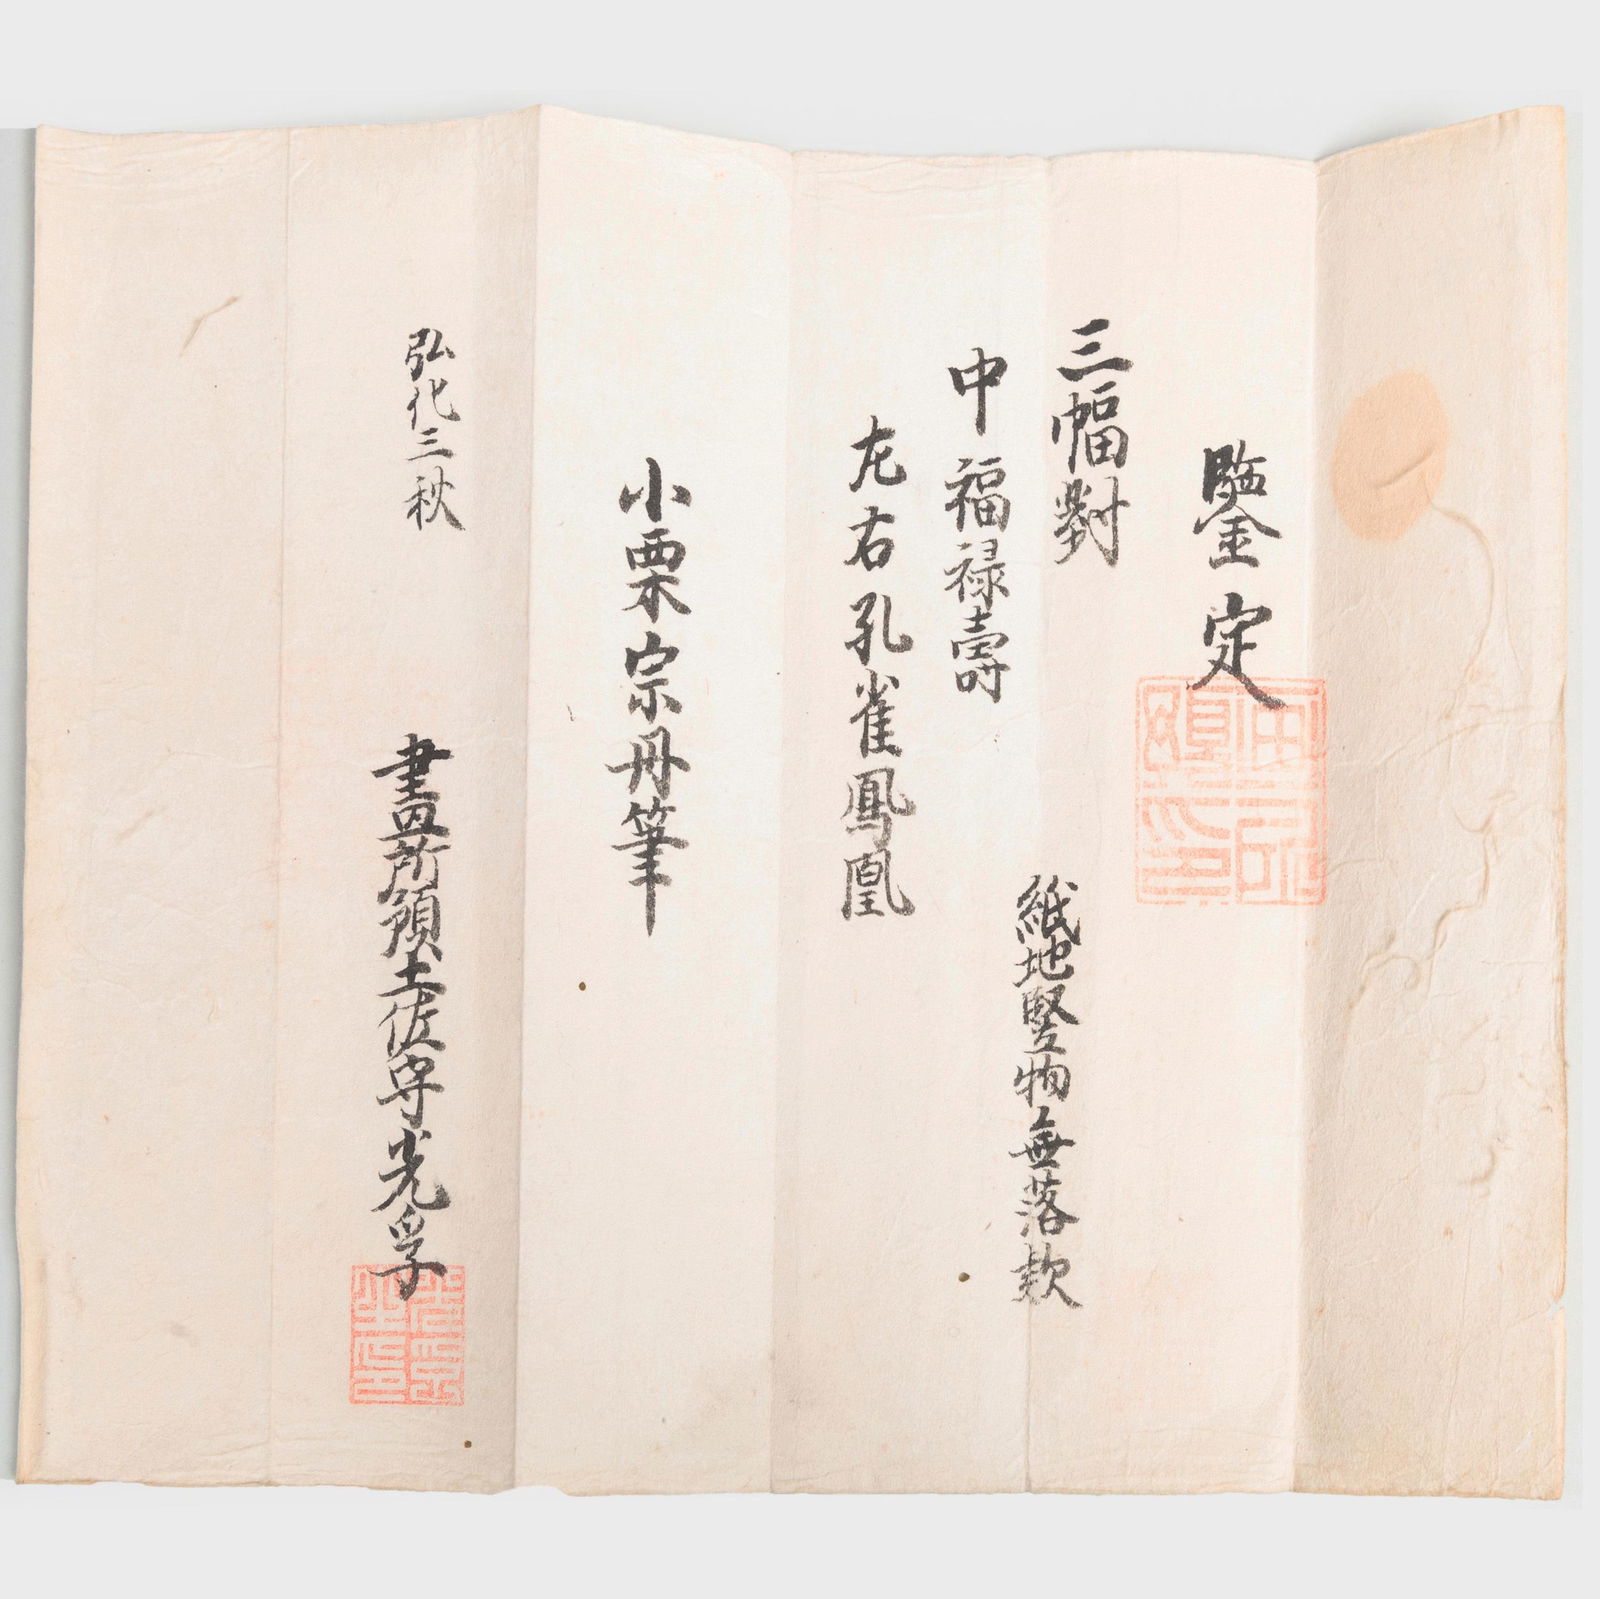 鑒定
三幅對
紙地竪物無落款
中福禄壽
左右孔雀鳳凰
小栗宗丹筆
弘化三秋
畫所預土佐守光孚